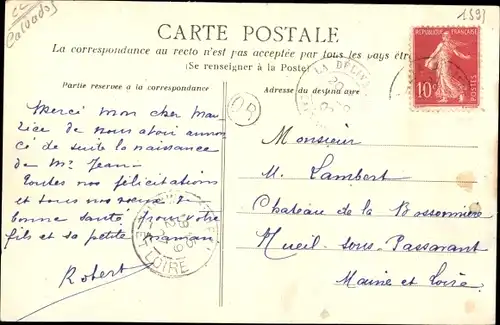 CC
Calvados
1593
CARTE POSTALE
La correspondance au recto n'est pas acceptée par tous les pays étr
(Se renseigner à la Poste)
Partie réservée à la correspondance
Adresse du destinataire
LA DÉLIV
REPUBLIQUE FRANÇAISE
10c
POSTES
OR
Merci mon cher Mau
rice de nous avoir annon
cé de suite la naissance
de Mr Jean
Toutes nos félicitations
et tous nos vœux de
bonne santé pour votre
fils et sa petite maman
Robert
LOIRE
Monsieur
M. Lambert
Chateau de la Bossonnière
Nueil-sous-Passavant
Maine et Loire